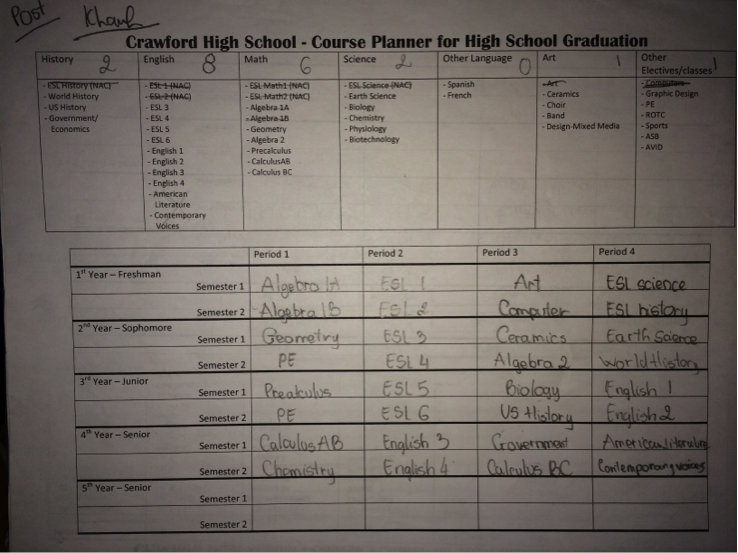 Post Khanh
Crawford High School - Course Planner for High School Graduation
History 2 English 8 Math 6 Science 2 Other Language 0 Art 1 Other Electives/classes 1
- ESL History (NAC)
- World History
- US History
- Government/
Economics
- ESL 1 (NAC)
- ESL 2 (NAC)
- ESL 3
- ESL 4
- ESL 5
- ESL 6
- English 1
- English 2
- English 3
- English 4
- American
Literature
- Contemporary
Voices
- ESL Math1 (NAC)
- ESL Math2 (NAC)
- Algebra 1A
- Algebra 1B
- Geometry
- Algebra 2
- Precalculus
- CalculusAB
- Calculus BC
- ESL Science (NAC)
- Earth Science
- Biology
- Chemistry
- Physiology
- Biotechnology
- Spanish
- French
- Art
- Ceramics
- Choir
- Band
- Design-Mixed Media
- Computers
- Graphic Design
- PE
- ROTC
- Sports
- ASB
- AVID
Period 1 Period 2 Period 3 Period 4
1st Year – Freshman
Semester 1 Algebra 1A ESL 1 Art ESL science
Semester 2 Algebra 1B ESL 2 Computer ESL history
2nd Year – Sophomore
Semester 1 Geometry ESL 3 Ceramics Earth Science
Semester 2 PE ESL 4 Algebra 2 World History
3rd Year – Junior
Semester 1 Preakulus ESL 5 Biology English 1
Semester 2 PE ESL 6 US History English 2
4th Year – Senior
Semester 1 Calculus AB English 3 Government American Literature
Semester 2 Chemistry English 4 Calculus BC Contemporary voices
5th Year – Senior
Semester 1
Semester 2